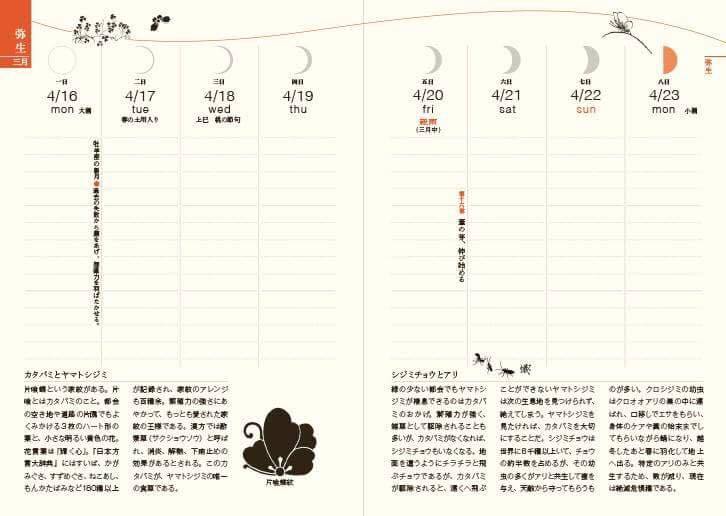 弥生
三月
一日
4/16
mon 大潮
二日
4/17
tue
春の土用入り
三日
4/18
wed
上巳 桃の節句
四日
4/19
thu
五日
4/20
fri
穀雨
(三月中)
六日
4/21
sat
七日
4/22
sun
八日
4/23
mon 小潮
弥生
牡羊座の新月●過去の失敗から顔をあげ、想像力を羽ばたかせる。
第十六候 葦の芽、伸び始める
カタバミとヤマトシジミ
片喰蝶という家紋がある。片
喰とはカタバミのこと。都会
の空き地や道路の片隅でもよ
くみかける3枚のハート形の
葉と、小さな明るい黄色の花。
花言葉は『輝く心』。『日本方
言大辞典』にはすいば、かが
みぐさ、すずめぐさ、ねこあし、
もんかたばみなど180種以上
が記録され、家紋のアレンジ
も百種余。繁殖力の強さにあ
やかって、もっとも愛された家
紋の王様である。漢方では酢
漿草(サクショウソウ)と呼ば
れ、消炎、解熱、下痢止めの
効果があるとされる。このカ
タバミが、ヤマトシジミの唯一
の食草である。
片喰蝶紋
シジミチョウとアリ
緑の少ない都会でもヤマトシ
ジミが棲息できるのはカタバ
ミのおかげ。繁殖力が強く、
雑草として駆除されることも
多いが、カタバミがなくなれば、
シジミチョウもいなくなる。地
面を這うようにチラチラと飛
ぶチョウであるが、カタバミ
が駆除されると、遠くへ飛ぶ
ことができないヤマトシジミ
は次の生息地を見つけられず、
絶えてしまう。ヤマトシジミを
見たければ、カタバミを大切
にすることだ。シジミチョウは
世界に8千種以上いて、チョウ
の約半数を占めるが、その幼
虫の多くがアリと共生して蜜を
与え、天敵から守ってもらうも
のが多い。クロシジミの幼虫
はクロオオアリの巣の中に運
ばれ、口移しでエサをもらい、
身体のケアや糞の始末までし
てもらいながら蛹になり、越
冬したあと春に羽化して地上
へ出る。特定のアリのみと共
生するため、数が減り、現在
は絶滅危惧種である。